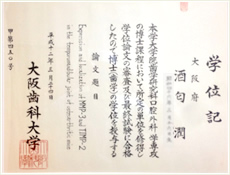 学位記
大阪府
酒匂 潤
本学大学院歯学研究科口腔外科学専攻
の博士課程において所定の単位を修得し
学位論文の審査及び最終試験に合格
したので博士(歯学)の学位を授与する
論文題目
Expression and localization of MMP-3 and TIMP-2
in the temporomandibular joint of
平成十二年三月
大阪歯科大学